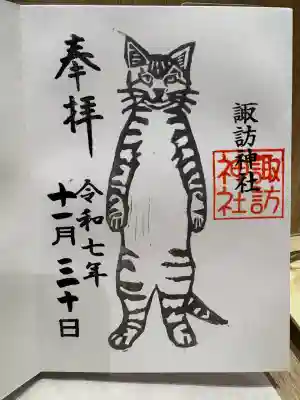 奉拝
諏訪神社
諏訪
神社
令和七年
十一月三十日